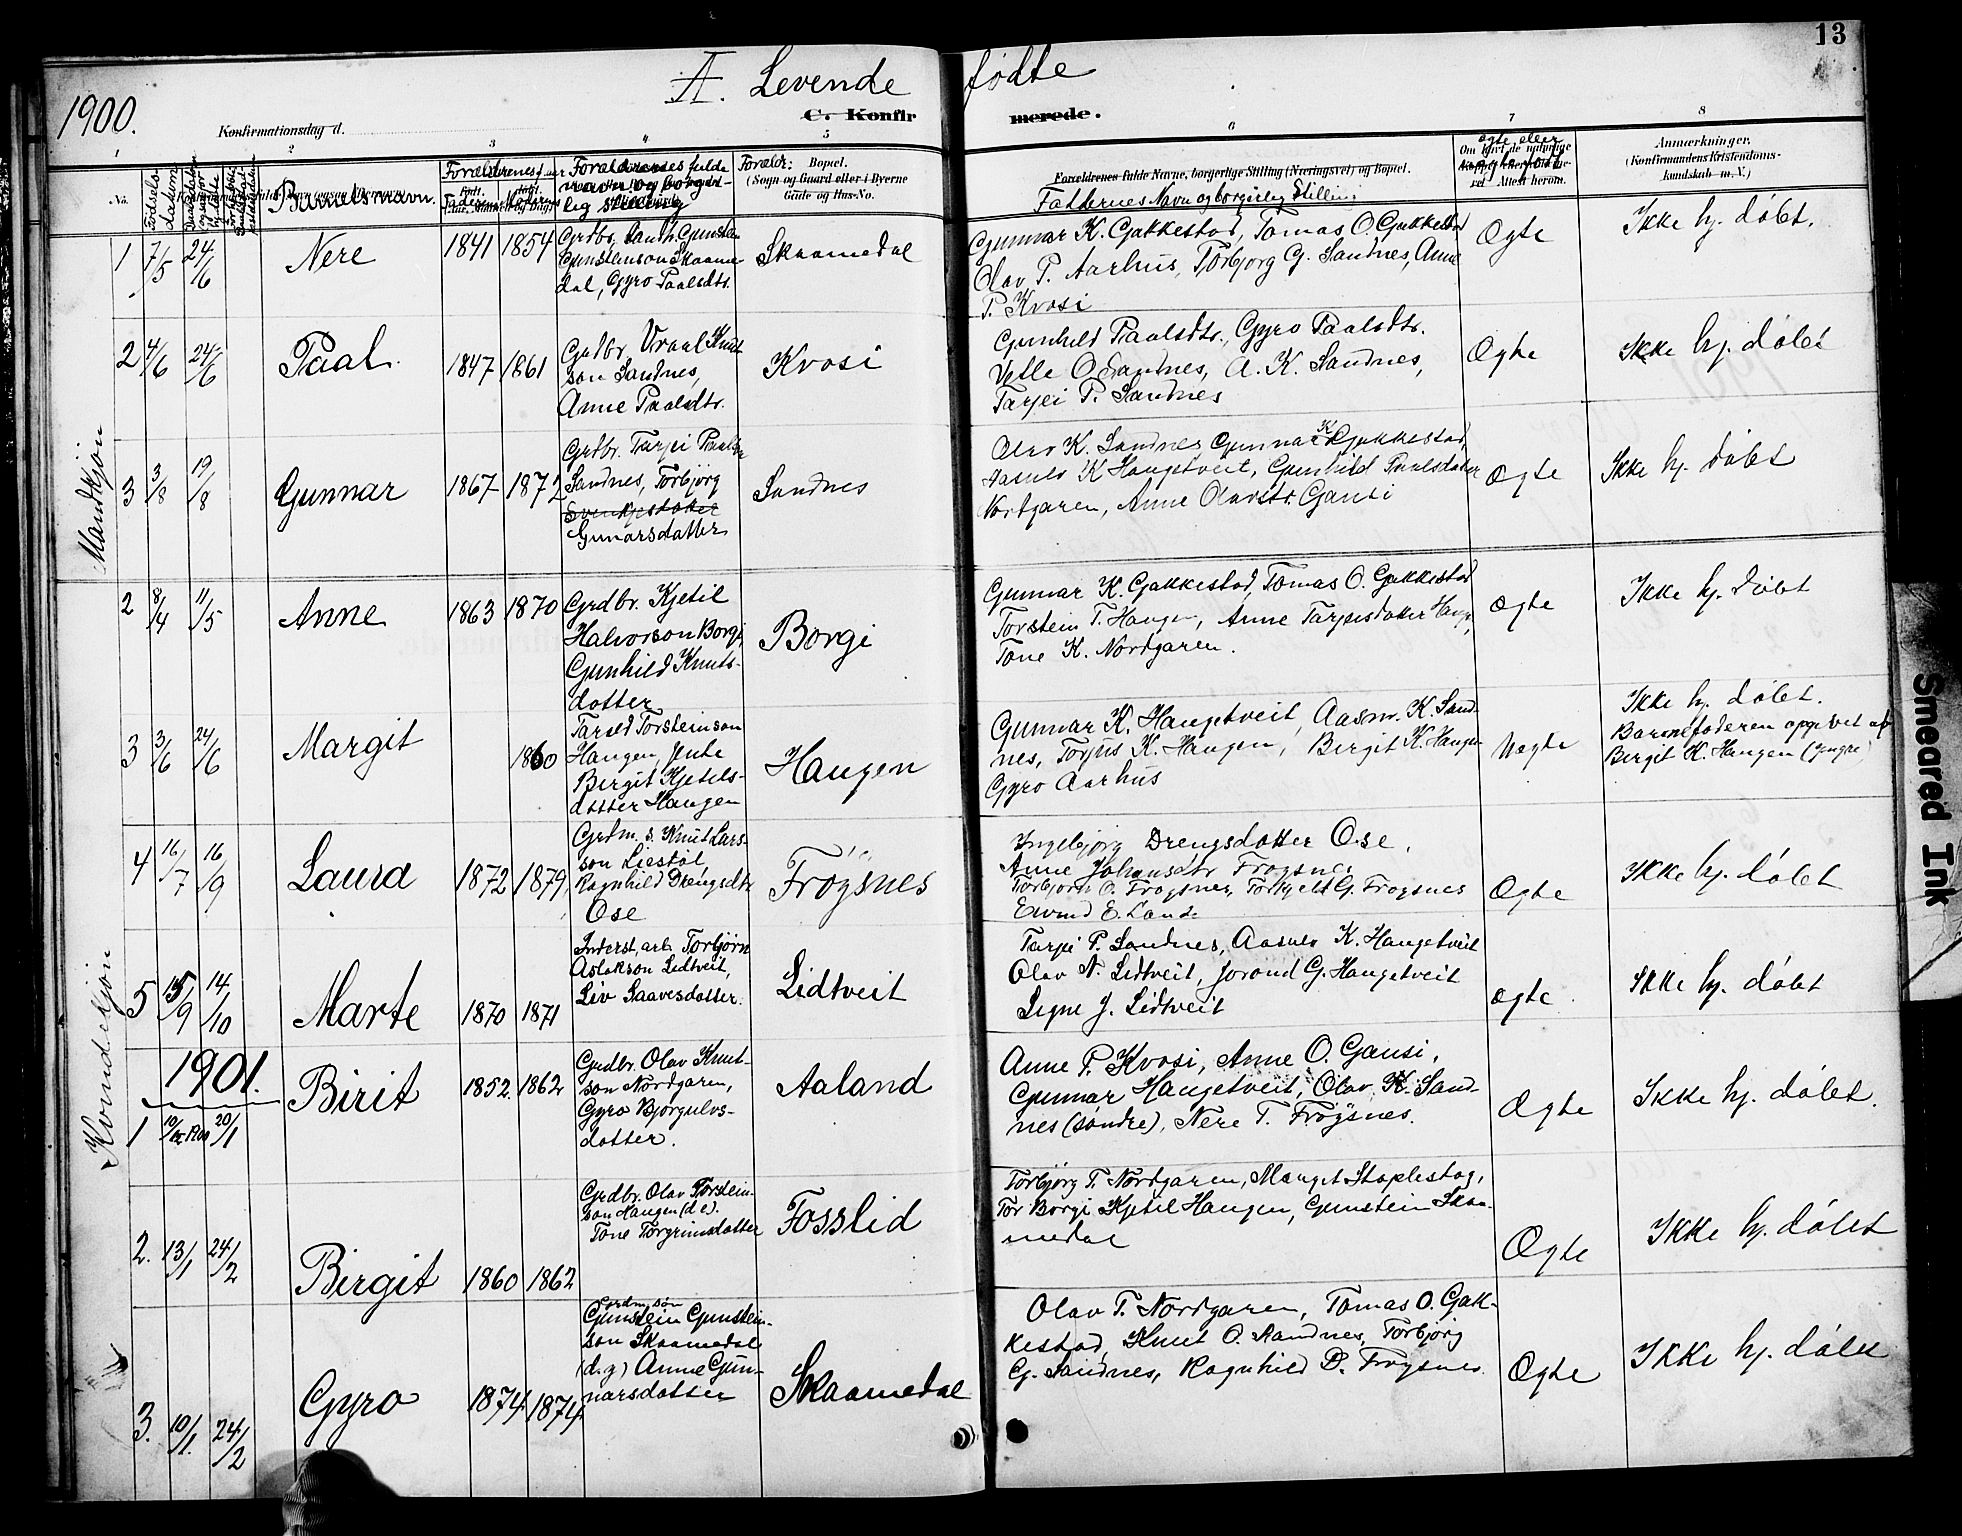 13
A. Levende fødte
1900.
Konfirmationsdag d.
C. Konfirmerede.
1 2 3 4 5 6 7 8
No.
Barnets navn.
Forældrenes fulde
Forældr: Bopæl.
(Sogn og Gaard eller i Byerne
Gade og Hus-No.
Forældrenes fulde Navne, borgerlige Stilling (Næringsvei) og Bopæl.
Faddernes Navn og borgerlig Stilling.
Ægte eller
Anmærkninger.
(Konfirmandens Kristendoms-
kundskab m. V.)
Mandkjøn
1 7/5 24/6 Nere 1841 1854
Grdbr. Sandn. Gunstein
Gunsteinson Skaame-
dal, Gyro Paalsdtr.
Skaamedal
Gunnar K. Gakkestad, Tomas O. Gakkestad
Olav P. Aarhus, Torbjørg G. Sandnes, Anne
P. Kvosi
Ægte
Ikke hj. døbt.
2 4/6 24/6 Paal 1847 1861
Grdbr. Vraal Knut-
son Sandnes,
Anne Paalsdtr.
Kvosi
Gunhild Paalsdtr., Gyro Paalsdtr.
Vetle O. Sandnes, A. K. Sandnes,
Tarjei P. Sandnes
Ægte
Ikke hj. døbt
3 3/8 19/8 Gunnar 1867 1872
Grdbr. Tarjei Paalson
Sandnes, Torbjørg
Gunarsdatter
Sandnes
Olav K. Sandnes Gunnar K. Gakkestad,
Aasulv K Haugetveit, Gunhild Paalsdatter
Nordgaren, Anne Olavsdtr. Gausi
Ægte
Ikke hj. døbt
Kvindekjøn
2 8/4 11/5 Anne 1863 1870
Grdbr. Kjetil
Halvorson Borgi
Gunhild Knuts-
dotter
Borgi
Gunnar K. Gakkestad, Tomas O. Gakkestad
Torstein T. Haugen, Anne Tarjeisdatter Haug.,
Tone K. Nordgaren.
Ægte
Ikke hj. døbt
3 3/6 24/6 Margit 1860
Tarald Torsteinson
Haugen, Jente
Birgit Kjetils-
dotter Haugen
Haugen
Gunnar K. Haugetveit, Aasm. K. Sand-
nes, Torjus K. Haugen, Birgit K. Haugen
Gyro Aarhus
Uægte
Ikke hj. døbt.
Barnefaderen opgivet af
Birgit K. Haugen (yngre)
4 16/7 16/9 Laura 1872 1879
Grdm. s. Knut Lars-
son Liestøl,
Ragnhild Drengsdtr.
Ose
Frøysnes
Ingebjørg Drengsdotter Ose.
Anne Johansdtr Frøysnes
Torbjørn O. Frøysnes, Torkjell G. Frøysnes
Eivind E. Lande
Ægte
Ikke hj. døbt
5 15/9 14/10 Marte 1870 1871
Inderst, arb. Torbjørn
Aslakson Lidtveit,
Liv Saavesdotter.
Lidtveit
Tarjei P. Sandnes, Aasulv K. Haugetveit
Olav N. Lidtveit, Jorond G. Haugetveit
Signe J. Lidtveit
ægte
Ikke hj. døbt
1901.
1 10/12 1900 20/1 Birit 1852 1862
Grdbr. Olav Knut-
son Nordgaren,
Gyro Bjørgulvs-
dotter.
Aaland
Anne P. Kvosi, Anne O. Gausi,
Gunnar Haugetveit, Olav K. Sand-
nes (søndre), Nere T. Frøysnes.
Ægte
Ikke hj. døbt.
2. 13/1 24/2 Birgit 1860 1862
Grdbr. Olav Torstein-
son Haugen (d e).
Tone Torgrimsdotter
Fosslid
Torbjørg T. Nordgaren, Margit Staplestog,
Tor Borgi Kjetil Haugen, Gunstein Skaa-
medal
Ægte
Ikke hj. døbt
3. 10/1. 24/2 Gyro 1874 1874
Gordm. søn
Gunstein Gunstein-
son Skaamedal
(d. y) Anne Gun-
narsdotter
Skaamedal
Olav T. Nordgaren, Tomas O. Gak-
kestad, Knut O. Sandnes, Torbjørg
G. Sandnes, Ragnhild D. Frøysnes
Ægte
Ikke hj. døbt
Smeared Ink